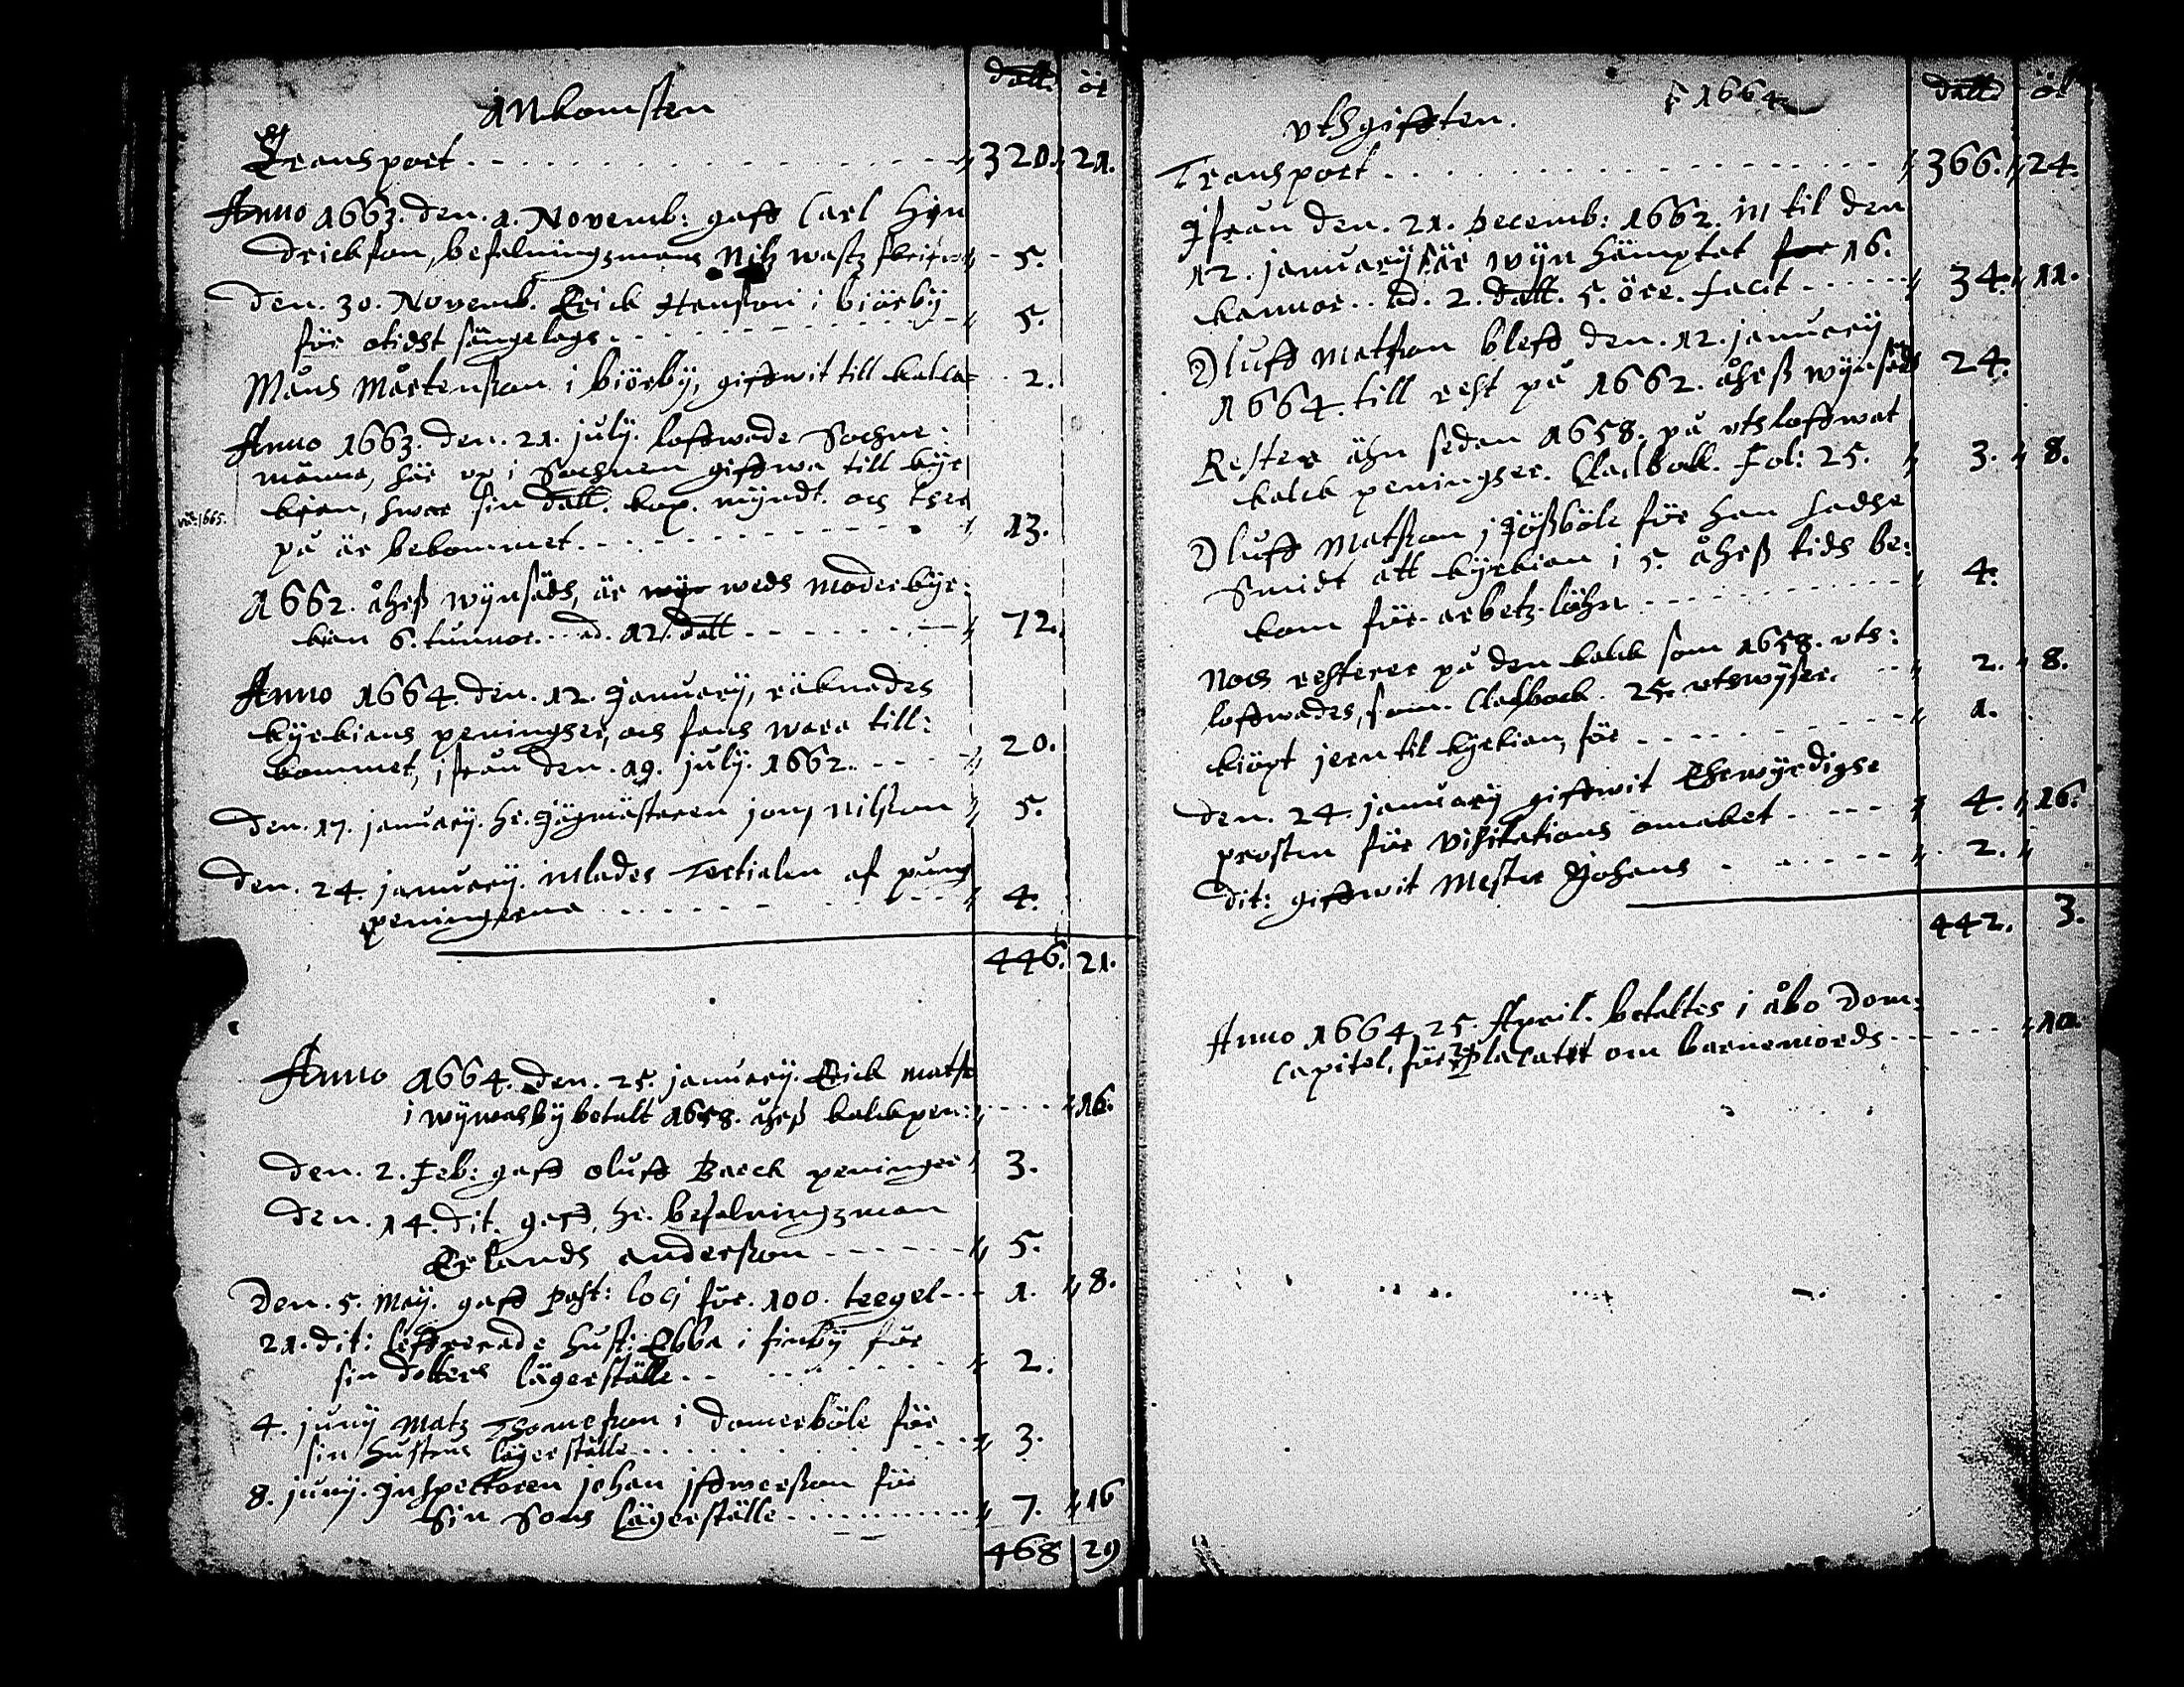 INkomsten dall. ör
Transport 320. 21.
Anno 1663. den. 1. Novemb: gaff Carl Hyn
drickson, befalningzmans Nilz wastz skrifw 5.
den. 30. Novemb. Erick Hanson i biörby
för otidst sängelags 5.
Måns Mårtensson i biörby, giffwit till kalla 2.
Anno 1663. den. 21. july. loffwade Sochne:
männa, här op i Sochnen giffwa till kyr
kian, hwar sin dall. kop. myndt. och ther
1665.
på är bekommet 13.
1662. åhrß wynsädh, är wedh moderkyr:
kian 6. tunnor ad. 12. dall 72.
Anno 1664. den. 12. January, räknades
kyrkians peningher, och fans wara till:
kommet, ifrån den. 19. july. 1662. 20.
den. 17. january. he. Jägmästaren jons Nilsson 5.
den. 24. january. inlades Tertialen af pung
peningerna 4.
446. 21.
Anno 1664. den. 25. january. Erick mats
i wywasby betalt 1658. åhrß kalckpen: 16.
den. 2. Feb: gaff oluff Barck peninger 3.
den. 14. dit. gaff, he. befalningzman
Erlandh andersson 5.
den. 5. May. gaff Past: loci för. 100. teegel 1. 8.
21. dit: leffrerade hust: Ebba i finby för
sin dotters lägerställe 2.
4. juny Matz Thomesson i domerböle för
sin hustrus lägerställe 3.
8. juny. Inspectoren johan iffwersson för
Sin Sons lägerställe 7. 16
468 29
vthgifften. 1664 dall. öl
Transport 366. 24.
Ifrån den. 21. Decemb: 1662. in til den
12. january är wyn hämptat for 16.
kannor. ad. 2. dall. 5. öre. facit 34. 11.
Oluff Matsson bleff den. 12. january
1664. till rest på 1662. åhrß wynsädh 24.
Rester ähn sedan 1658. på vthloffwat
kalck peningher. Cladbok. Fol: 25. 3. 8.
Oluff Matsson j Jößböle för han hadhe
Smidt ått kyrkian i 5. åhrß tidh be:
kom för arbetz löhn 4.
Noch resterer på den kalck som 1658. vth:
loffwades, som. Cladbock. 25. vthwyser. 2. 8.
kiöpt jern til kyrkian, för 1.
den. 24. january giffwit Ehrwyrdighe
prosten för Visitations omaket 4. 16.
Dit: giffwit Mester Johans 2.
442. 3.
Anno 1664. 25. April. betaltes i åbo Dom:
Capitel, för placatet om barnemordh 10.